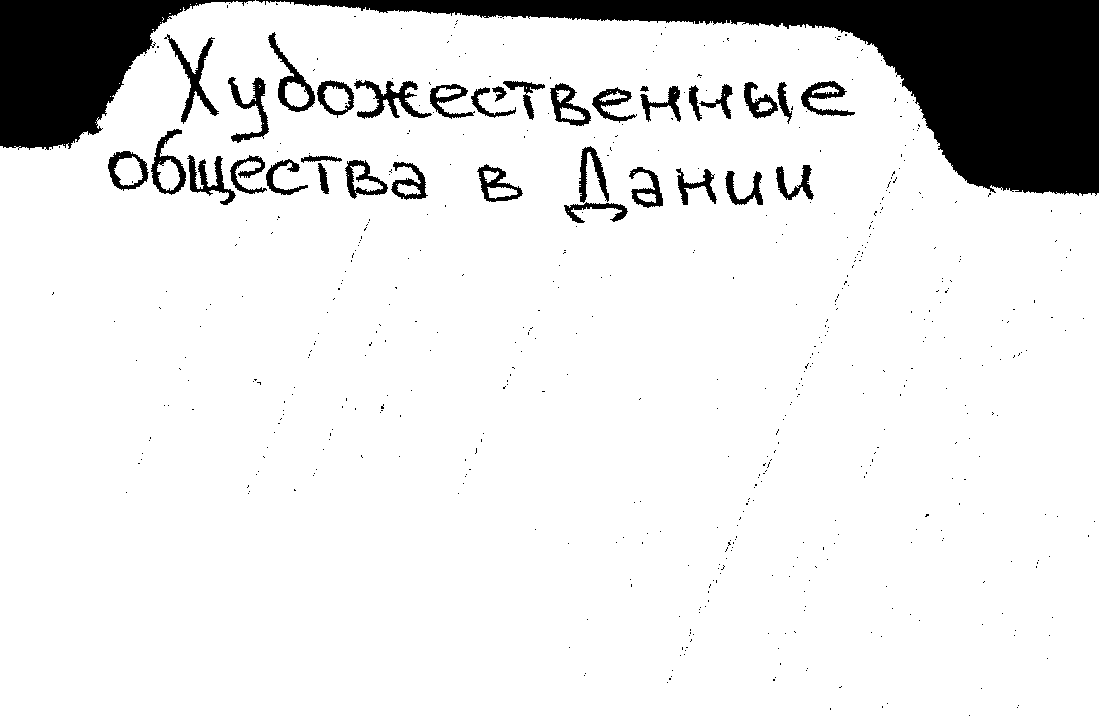 Художественные
общества в Дании